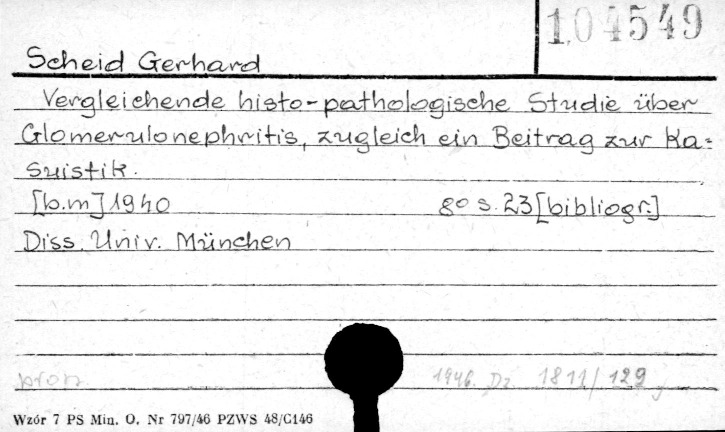 104549
Scheid Gerhard
Vergleichende histo-pathologische Studie über
Glomerulonephritis, zugleich ein Beitrag zur Ka=
suistik.
[b.m] 1940 8o s. 23 [bibliogr.]
Diss. Univ. München
1946. Dz. 1811/129
Wzór 7 PS Min. O. Nr 797/46 PZWS 48/G146